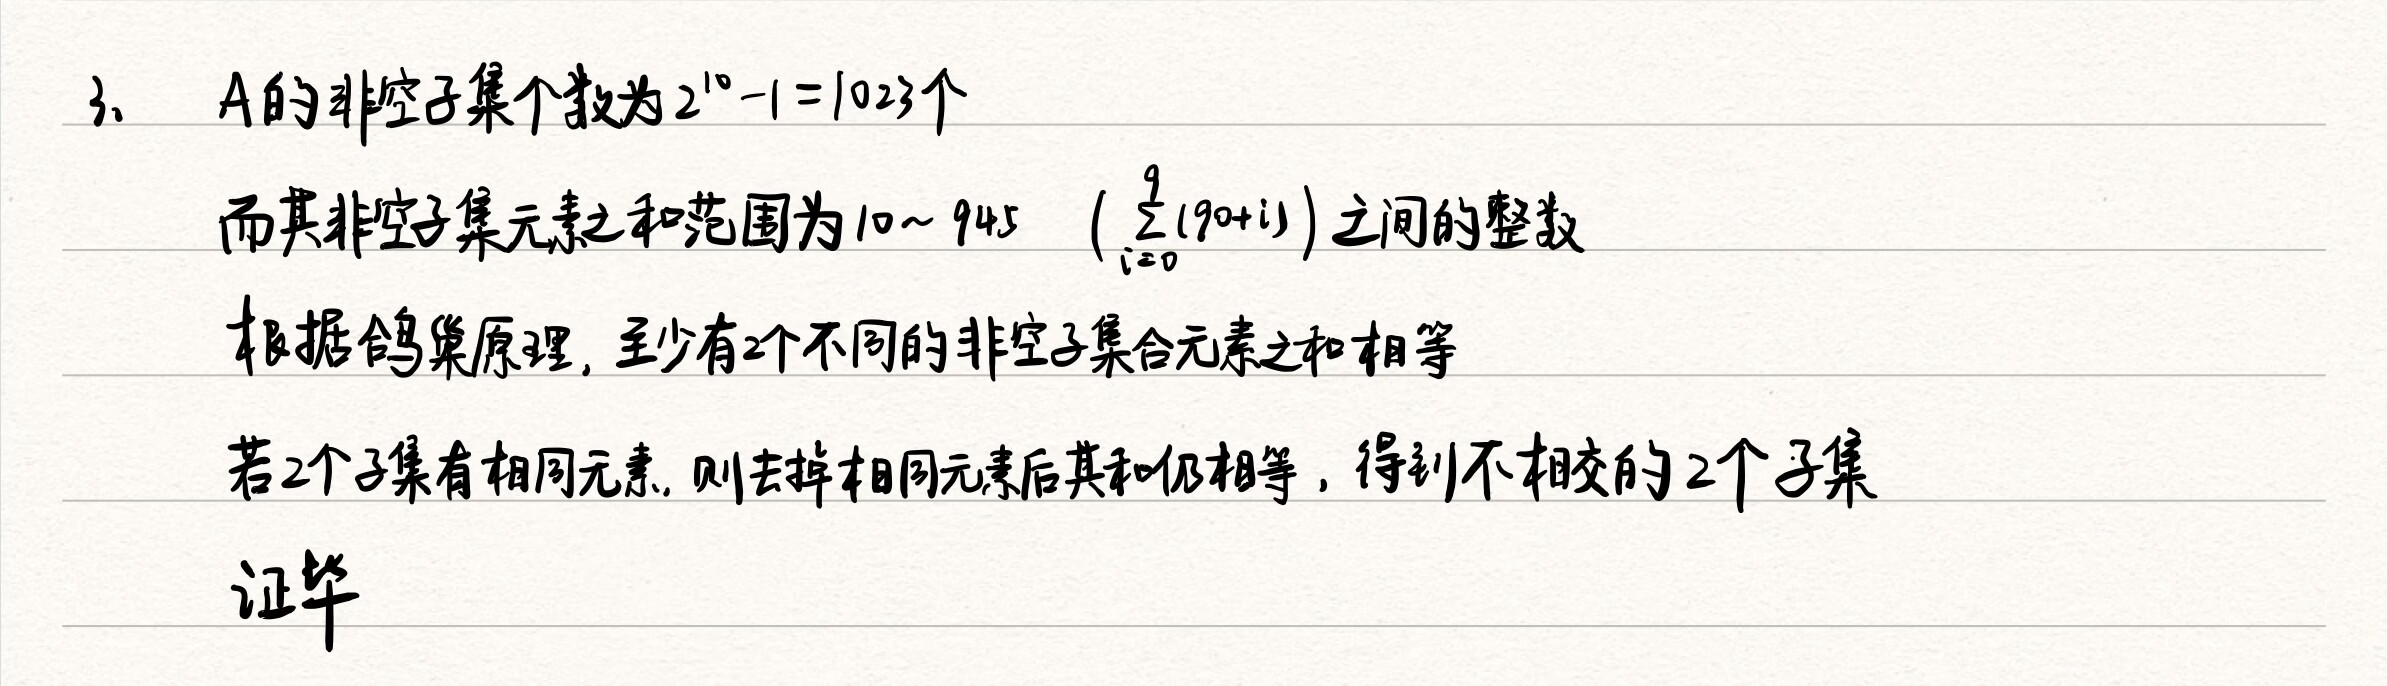 3、 A的非空子集个数为2^{10}-1=1023个
而其非空子集元素之和范围为10~945 (\sum_{i=0}^{9}(90+i))之间的整数
根据鸽巢原理,至少有2个不同的非空子集合元素之和相等
若2个子集有相同元素,则去掉相同元素后其和仍相等,得到不相交的2个子集
证毕